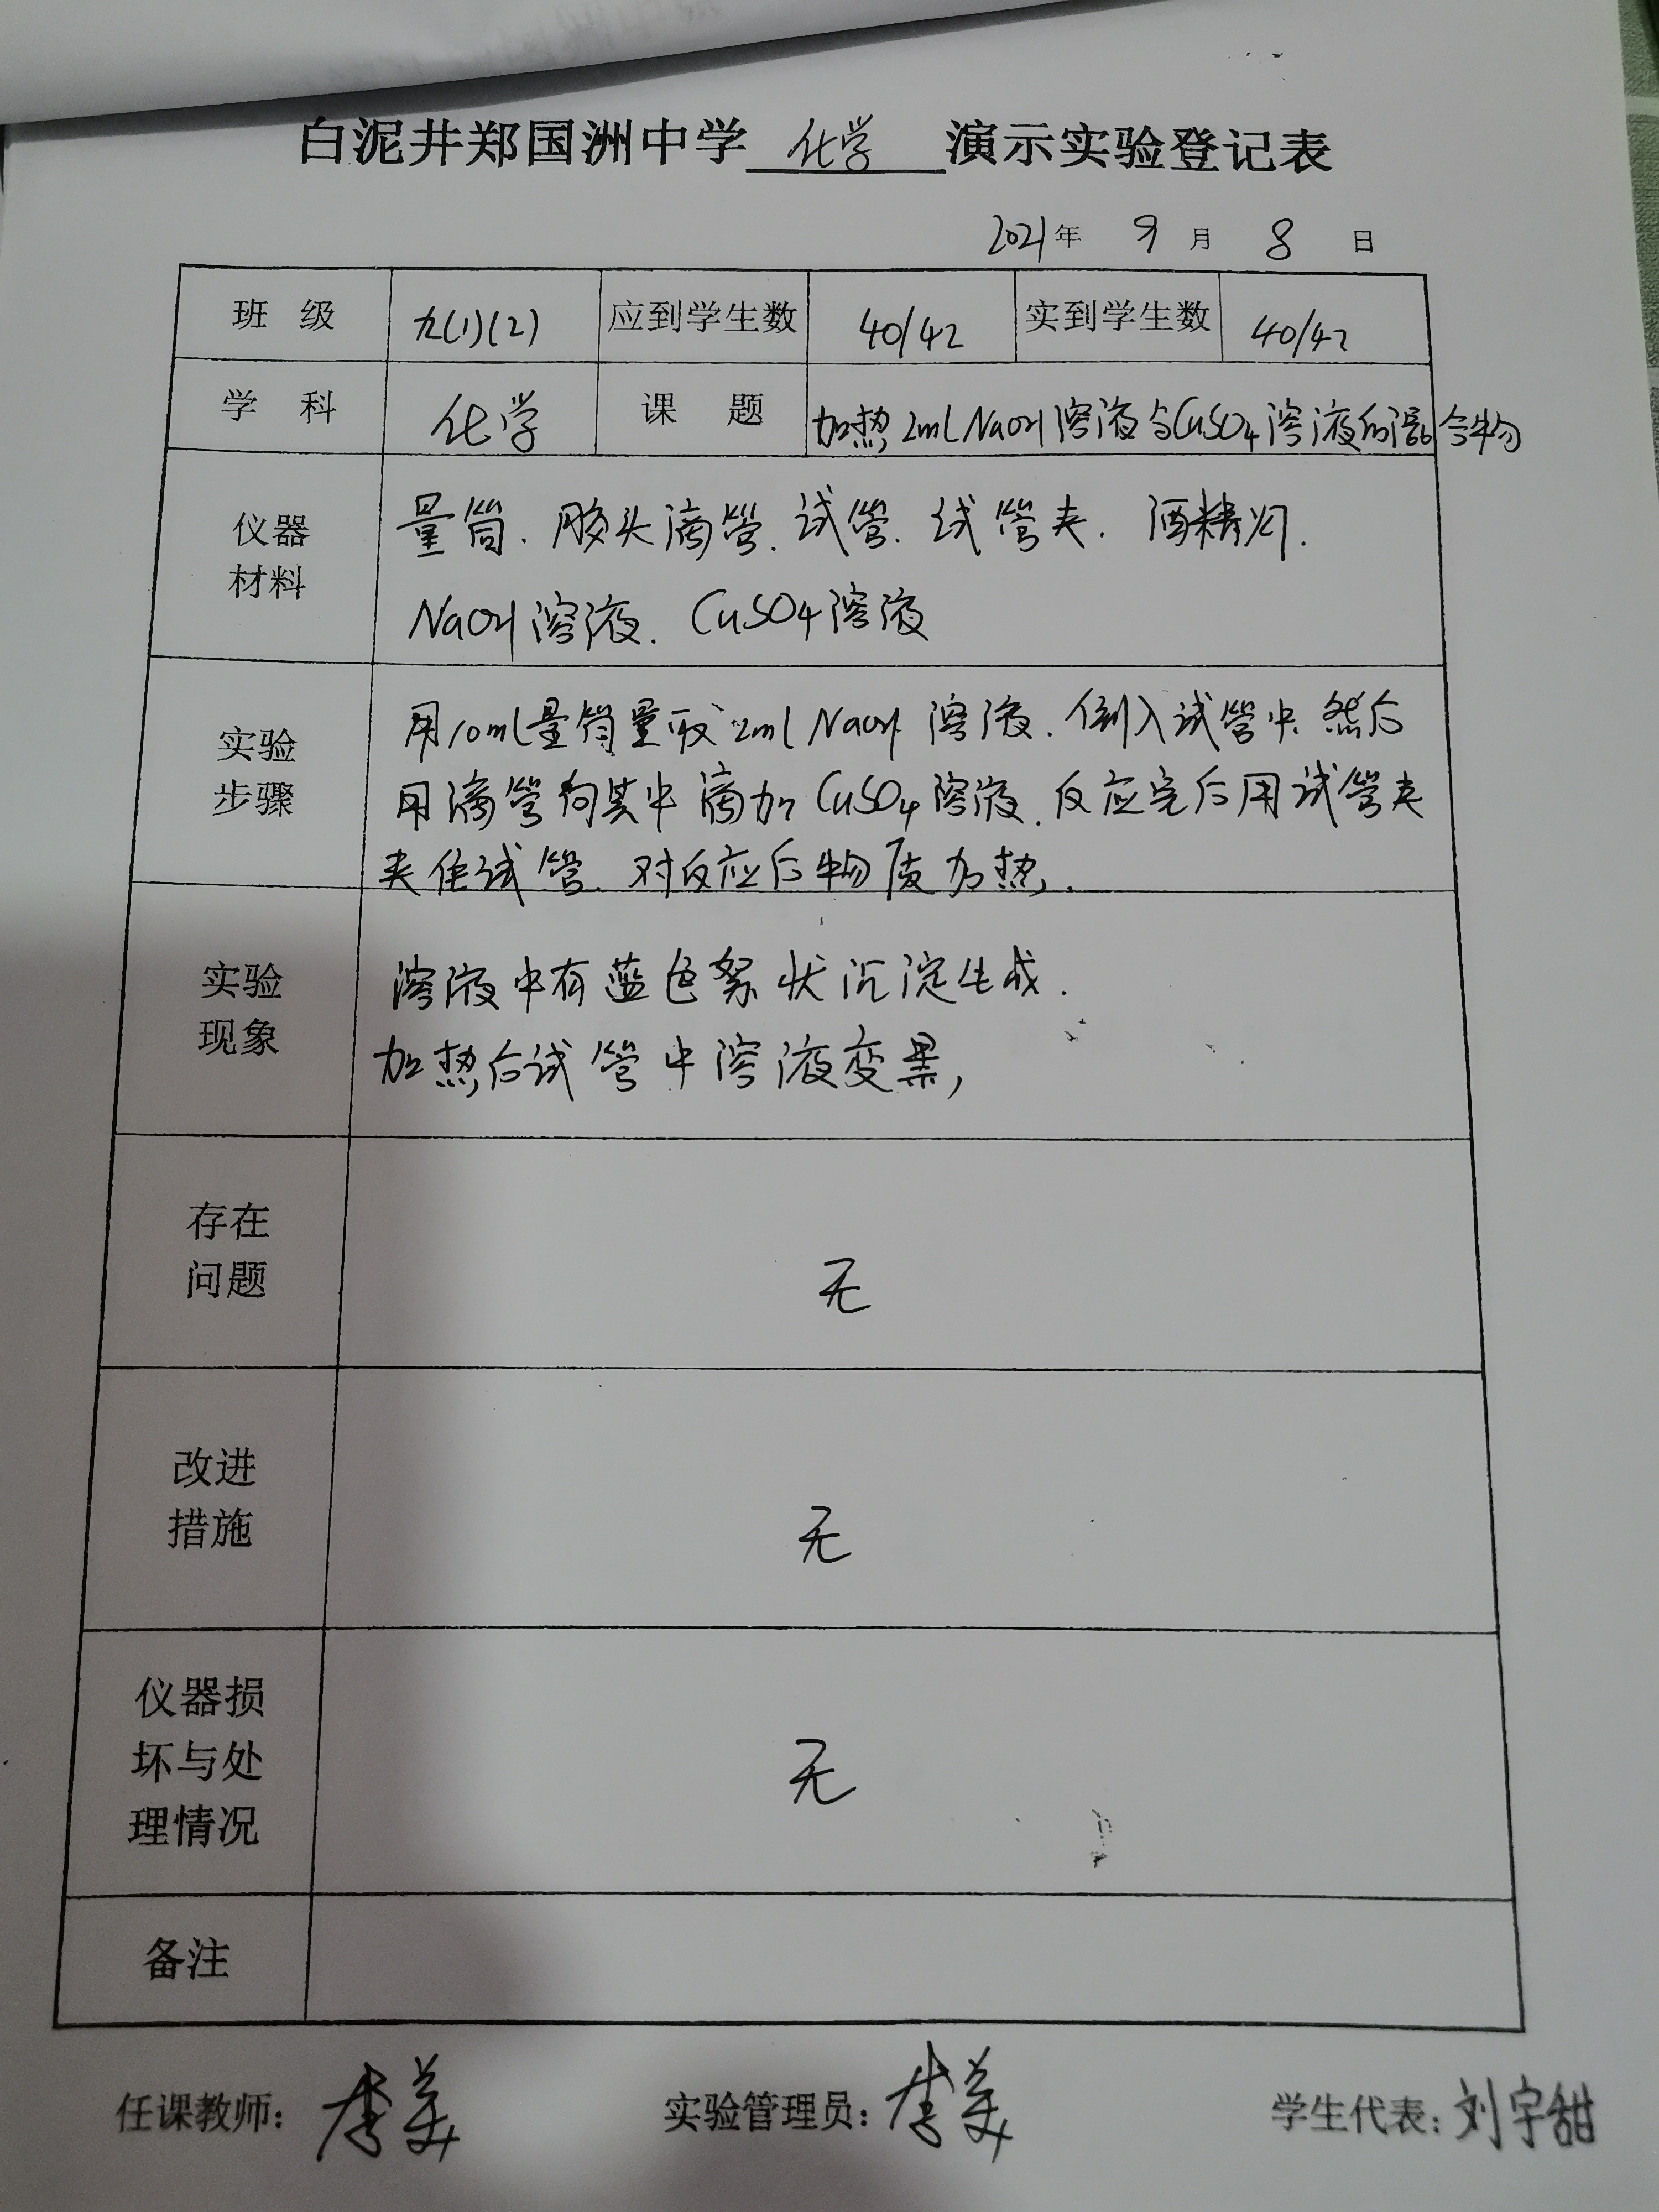 白泥井郑国洲中学 化学 演示实验登记表
2021年 9月 8日
班 级 九(1)(2) 应到学生数 40/42 实到学生数 40/42
学 科 化学 课 题 加热2ml NaOH溶液与CuSO4溶液的混合物
仪器
材料
量筒、胶头滴管、试管、试管夹、酒精灯.
NaOH溶液、CuSO4溶液
实验
步骤
用10ml量筒量取2ml NaOH溶液、倒入试管中、然后
用滴管向其中滴加CuSO4溶液、反应完后用试管夹
夹住试管、对反应后物质加热.
实验
现象
溶液中有蓝色絮状沉淀生成.
加热后试管中溶液变黑,
存在
问题
无
改进
措施
无
仪器损
坏与处
理情况
无
备注
任课教师: 李美 实验管理员: 李美 学生代表: 刘宇甜